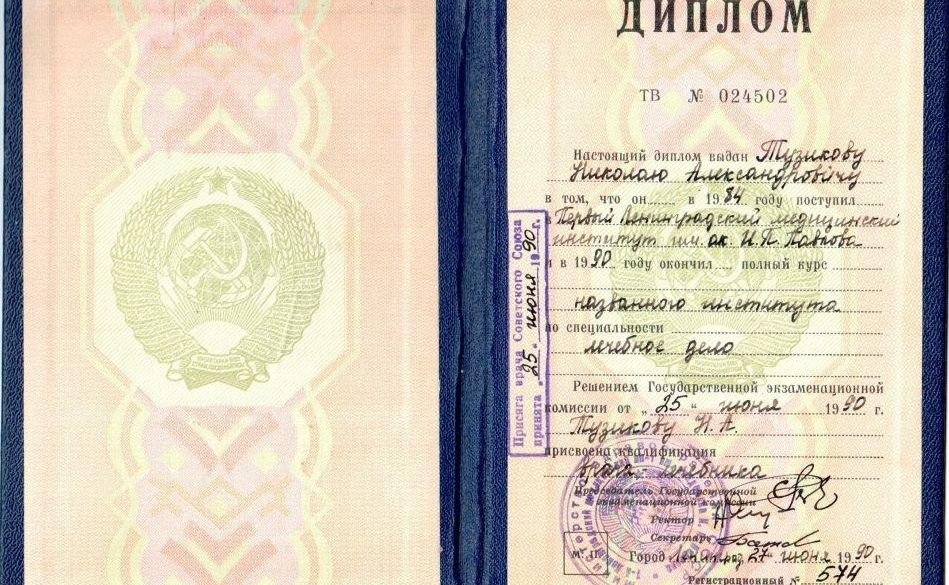 ДИПЛОМ
ТВ № 024502
Настоящий диплом выдан Тузикову
Николаю Александровичу
в том, что он в 1984 году поступил
в Первый Ленинградский медицинский
институт им. ак. И. П. Павлова
и в 1990 году окончил полный курс
названного института
по специальности
лечебное дело
Решением Государственной экзаменационной
комиссии от „25“ июня 1990 г.
Тузикову Н. А.
присвоена квалификация
врача-лечебника
Председатель Государственной
экзаменационной комиссии
Ректор
Секретарь
М. П.
Город Ленинград 27 июня 1990 г.
Регистрационный № 574
Присяга врача Советского Союза
принята „25“ июня 1990 г.